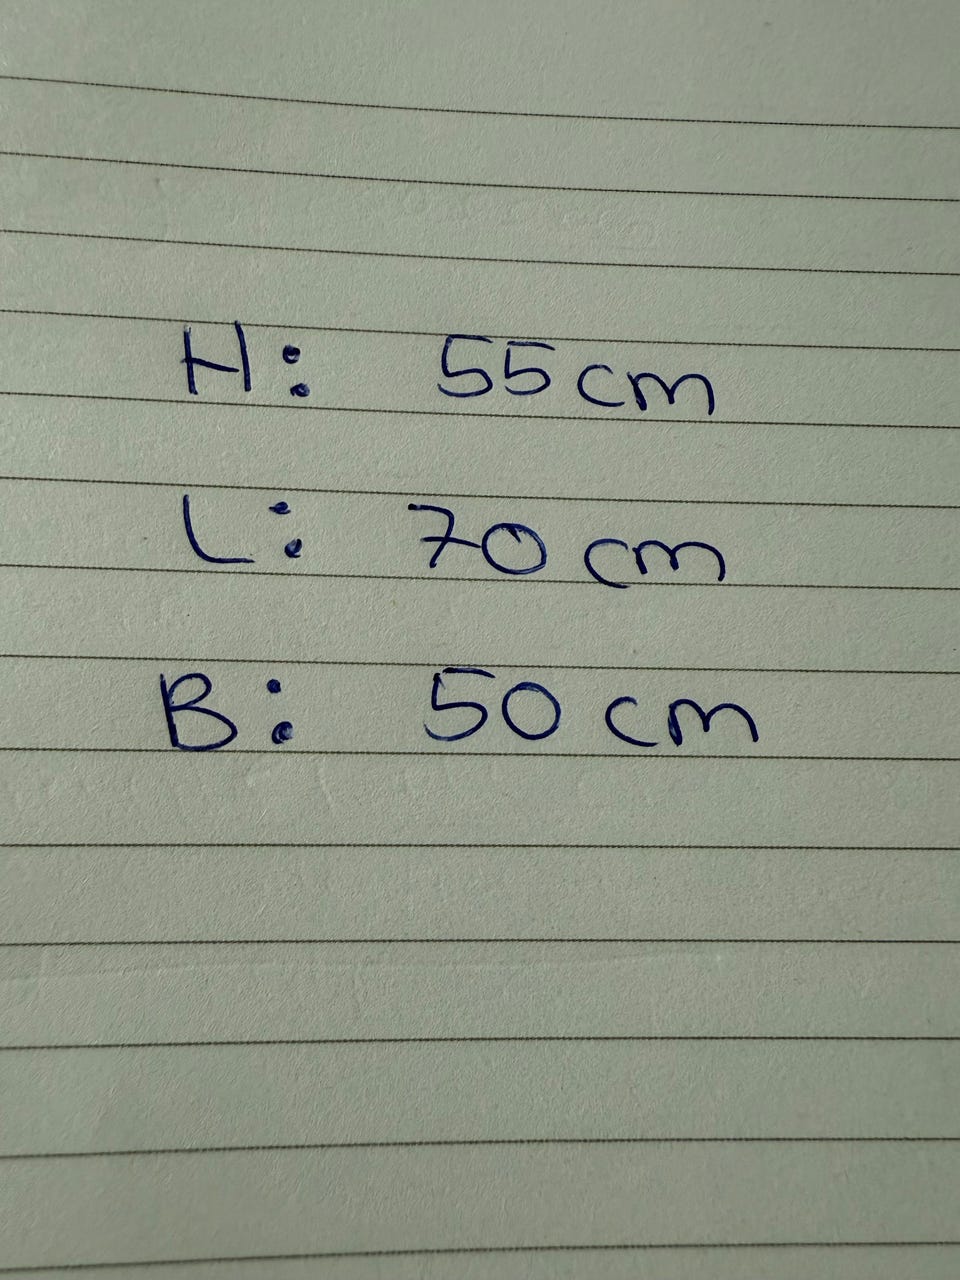 H: 55 cm
L: 70 cm
B: 50 cm